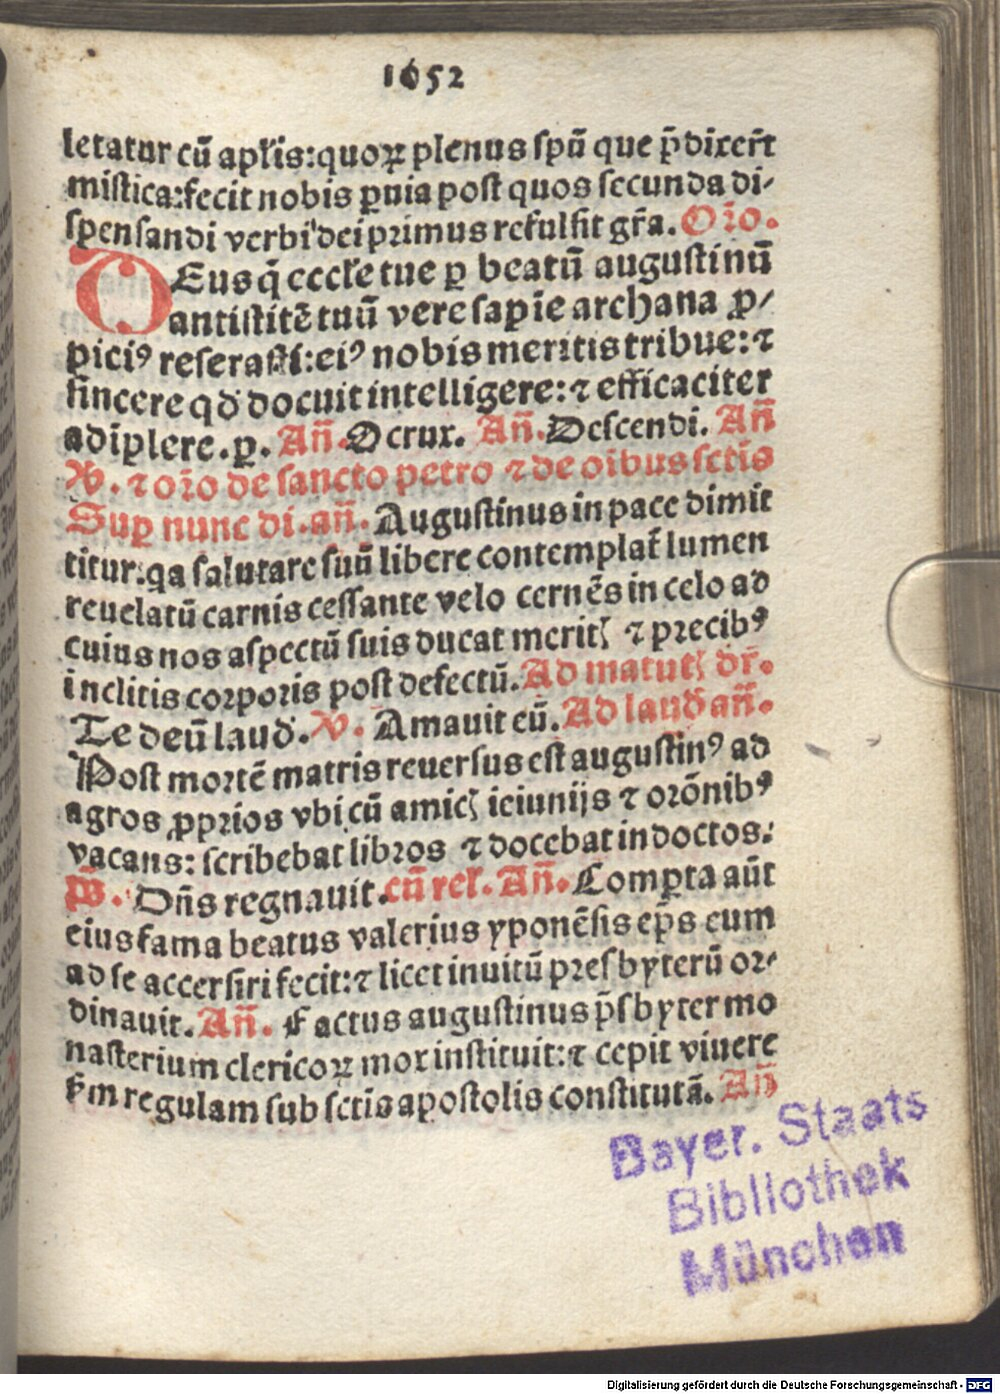 1652
letatur cū apl̄is:quoꝝ plenus spū que p̄dixer̄t
mistica:fecit nobis ꝑuia post quos secunda di-
spensandi verbi dei primus refulsit gr̄a. Or̄o.
DEus q̄ eccl̄e tue ꝑ beatū augustinū
antistitē tuū vere sapīe archana ꝓ/
piciꝰ reserasti:eiꝰ nobis meritis tribue:⁊
sincere qd̄ docuit intelligere:⁊ efficaciter
adīplere.ꝑ. An̄. O crux. An̄. Descendi. An̄
V. ⁊ or̄o de sancto petro ⁊ de oībus sctīs
Suꝑ nunc di.an̄. Augustinus in pace dimit
titur:qa salutare suū libere contemplat̄ lumen
reuelatū carnis cessante velo cernēs in celo ad
cuius nos aspectū suis ducat meritꝭ ⁊ precibꝰ
inclitis corporis post defectū. Ad matutꝭ dr̄.
Te deū laud̄. V. Amauit eū. Ad laud̄ an̄.
Post mortē matris reuersus est augustinꝰ ad
agros ꝓprios vbi cū amicꝭ ieiunijs ⁊ orōnibꝰ
vacans: scribebat libros ⁊ docebat indoctos.
p̄s. Dn̄s regnauit. cū rel̄. An̄. Comꝑta aūt
eius fama beatus valerius yponēsis ep̄s eum
ad se accersiri fecit:⁊ licet inuitū presbyterū or-
dinauit. An̄. Factus augustinus p̄sbyter mo
nasterium clericoꝝ mox instituit:⁊ cepit viuere
s̄m regulam sub sctīs apostolis constitutā. An̄
Bayer. Staats
Bibliothek
München
Digitalisierung gefördert durch die Deutsche Forschungsgemeinschaft - DFG